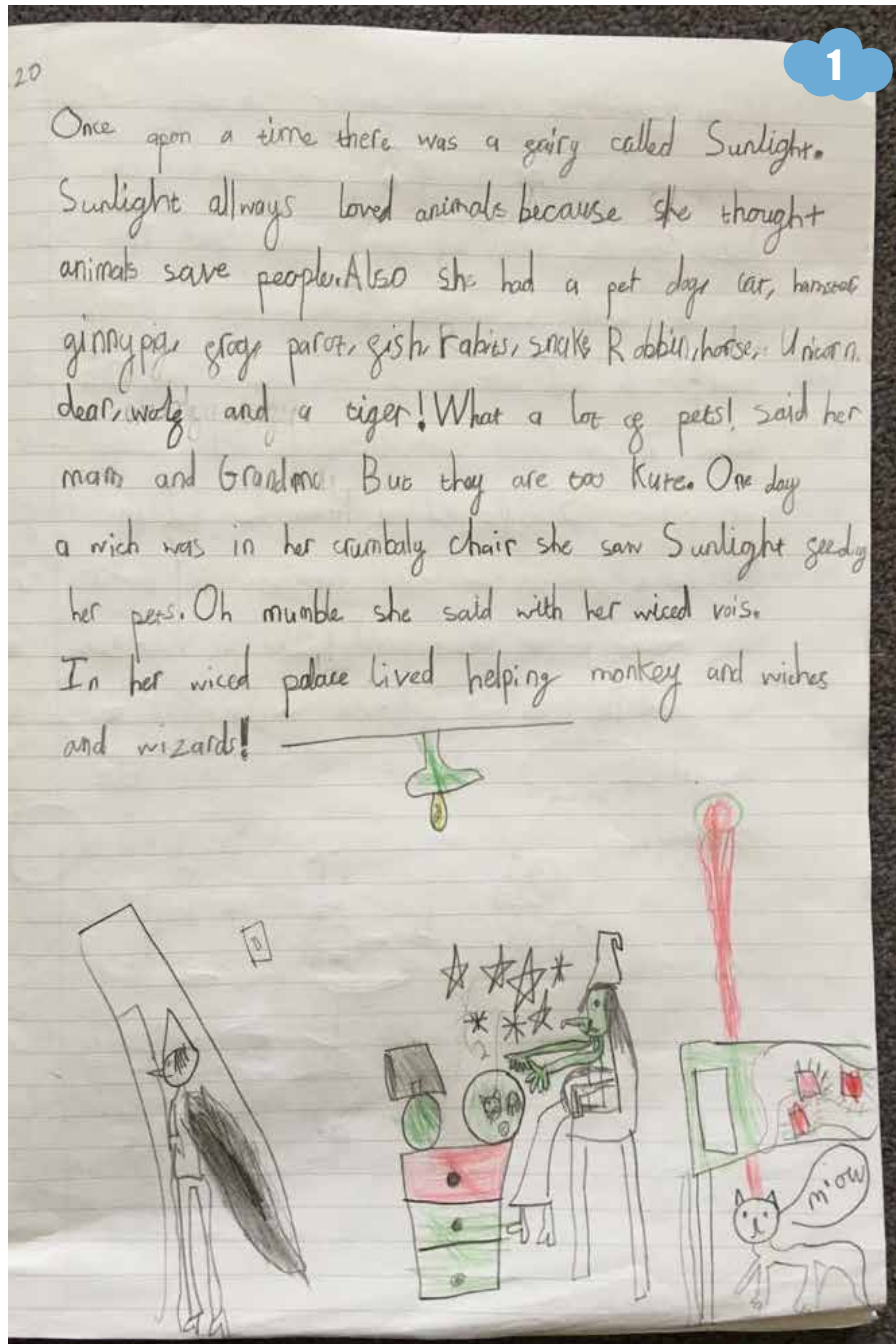 20
1
Once apon a time there was a fairy called Sunlight.
Sunlight allways loved animals because she thought
animals save people. Also she had a pet dog, cat, hamster
ginnypig, frog, parot, fish, rabits, snake, Robbin, horse, Unicorn.
dear, wolf and a tiger! What a lot of pets! said her
mam and Grandma. But they are too Kute. One day
a wich was in her crumbaly chair she saw Sunlight feeding
her pets. Oh mumble she said with her wiced vois.
In her wiced palace lived helping monkey and wiches
and wizards!
m'ow